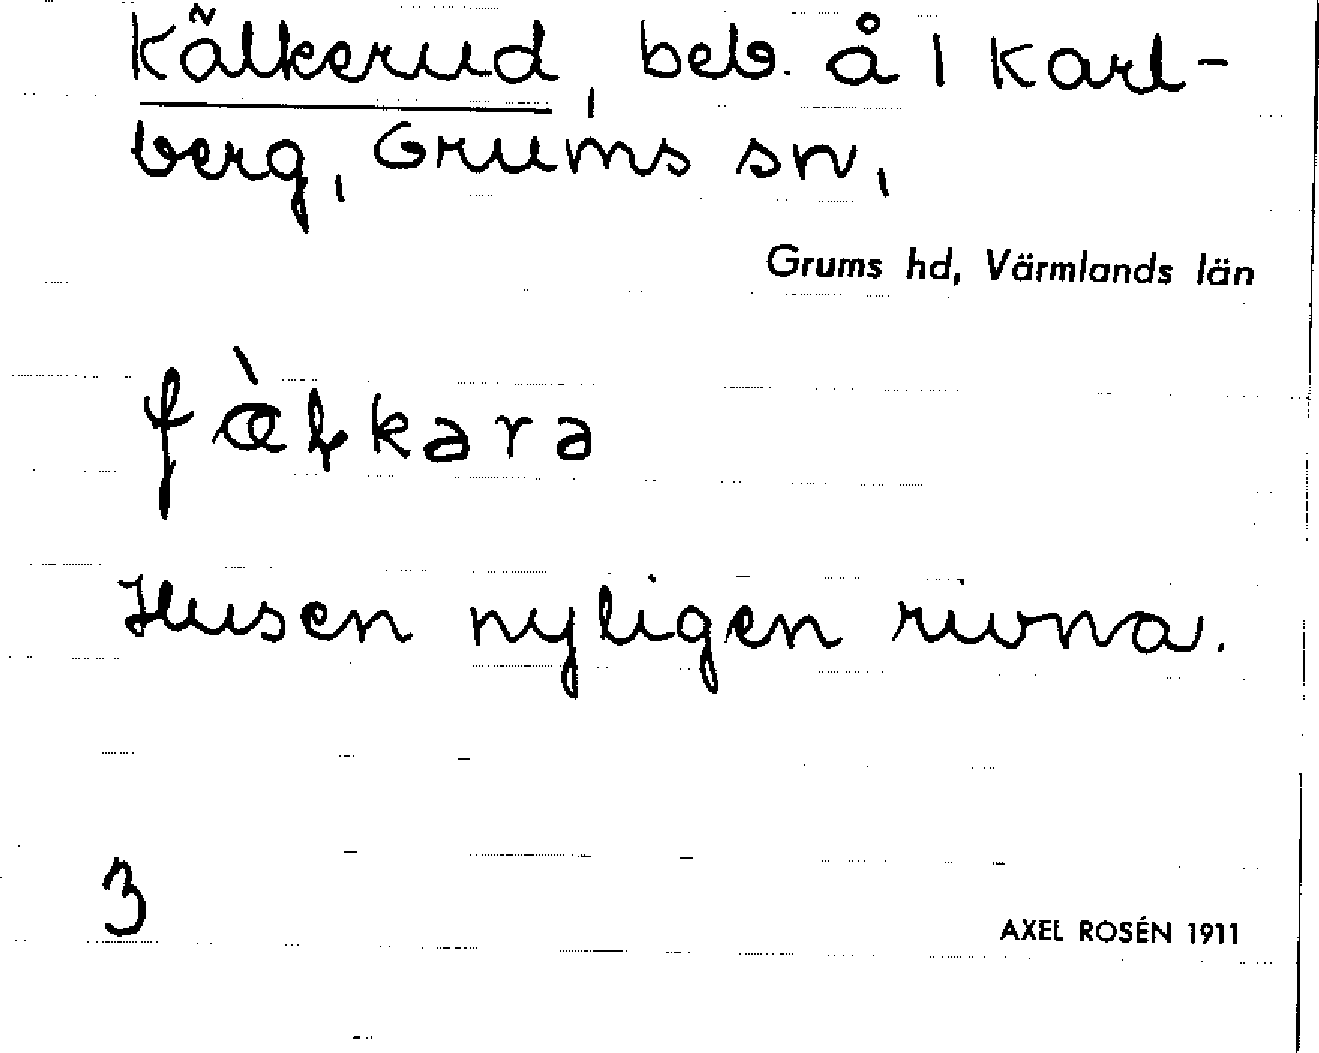 Kälkerud, beb. å 1 Karl-
berg, Grums sn,
Grums hd, Värmlands län
Husen nyligen rivna.
3
AXEL ROSÉN 1911